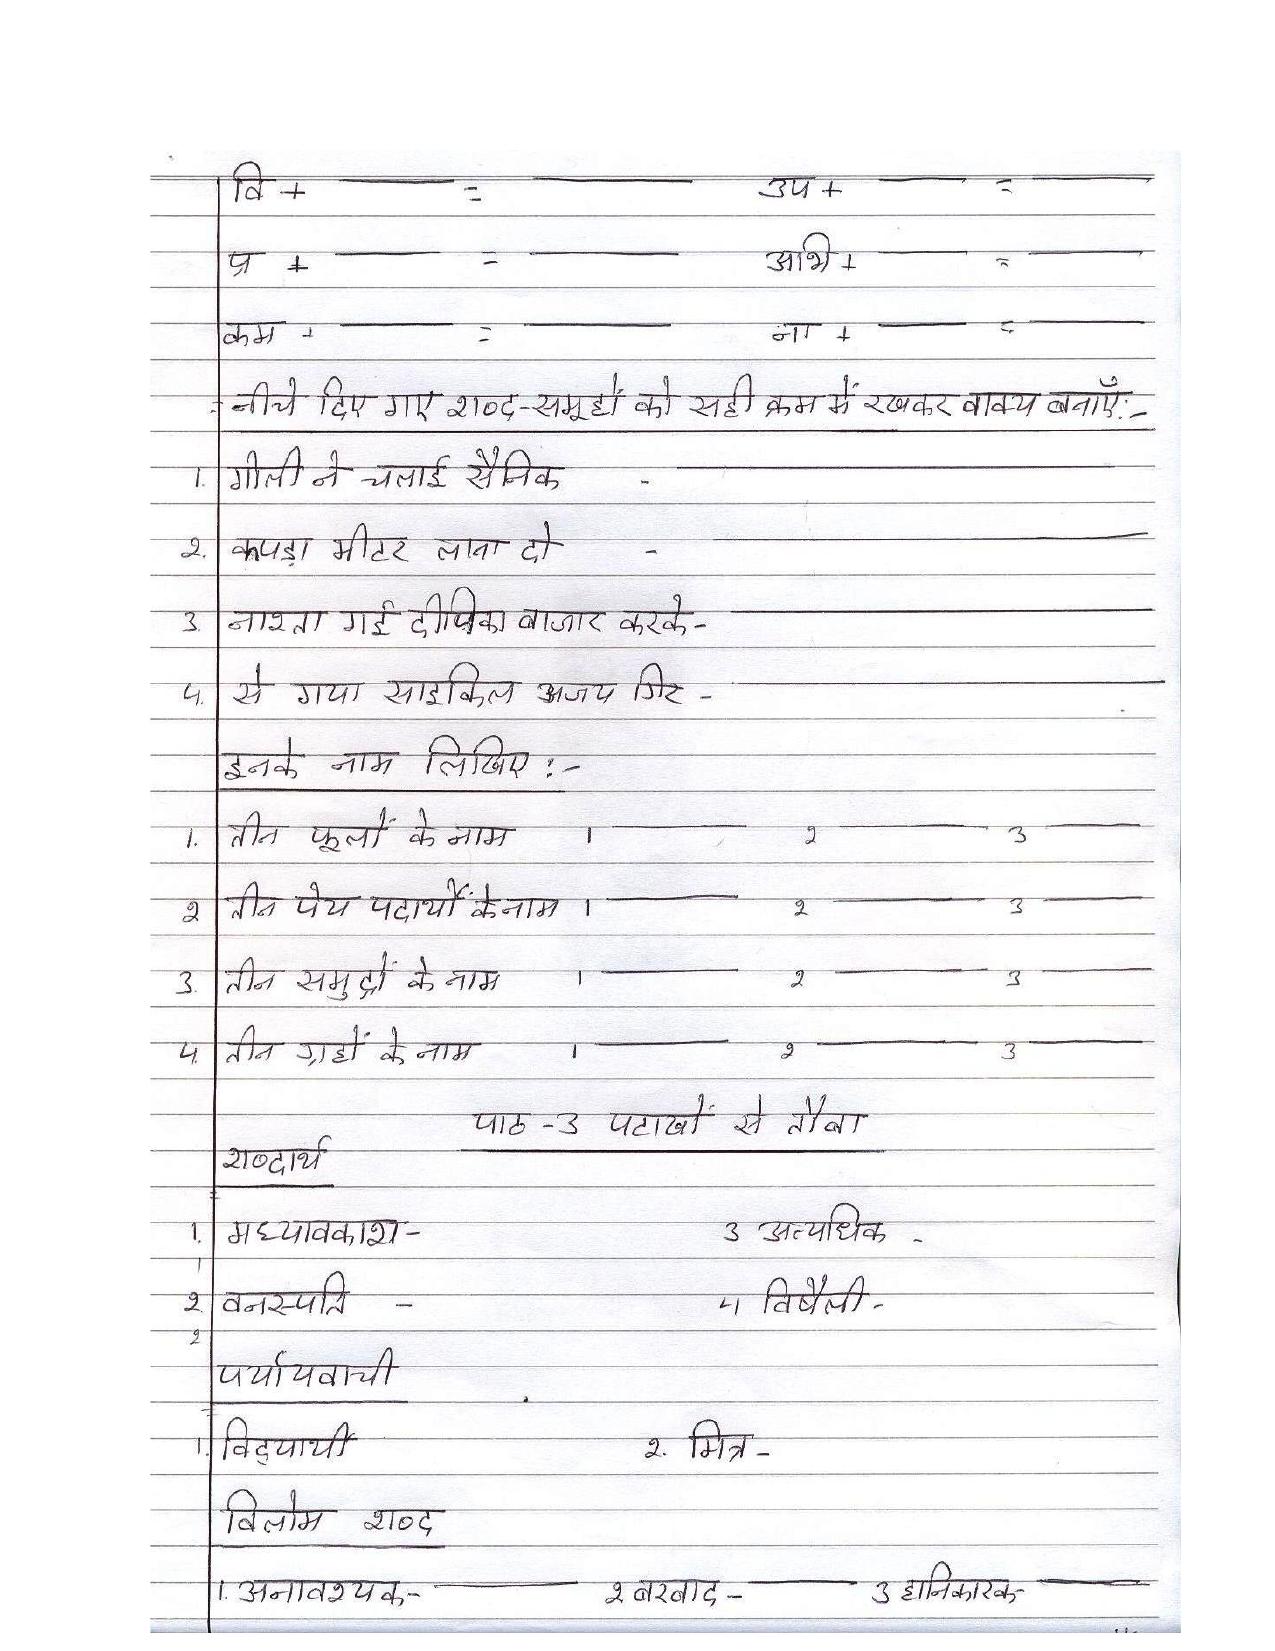 वि + ——— = ——— उप + ——— = ———
प्र + ——— = ——— अभि + ——— = ———
कम + ——— = ——— ना + ——— = ———
नीचे दिए गए शब्द-समूहों को सही क्रम में रखकर वाक्य बनाएँ:-
1. गोली ने चलाई सैनिक - ———
2. कपड़ा मीटर लाना दो - ———
3. नाश्ता गई दीपिका बाजार करके- ———
4. से गया साइकिल अजय गिर - ———
इनके नाम लिखिए :-
1. तीन फूलों के नाम 1 ——— 2 ——— 3 ———
2 तीन पेय पदार्थों के नाम 1 ——— 2 ——— 3 ———
3. तीन समुद्रों के नाम 1 ——— 2 ——— 3 ———
4. तीन ग्रहों के नाम 1 ——— 2 ——— 3 ———
पाठ -3 पटाखों से तौबा
शब्दार्थ
1. मध्यावकाश- 3 अत्यधिक -
1
2. वनस्पति - 4 विषैली-
2
पर्यायवाची
1. विद्यार्थी 2. मित्र-
विलोम शब्द
1. अनावश्यक- ——— 2 बरबाद- ——— 3 हानिकारक- ———